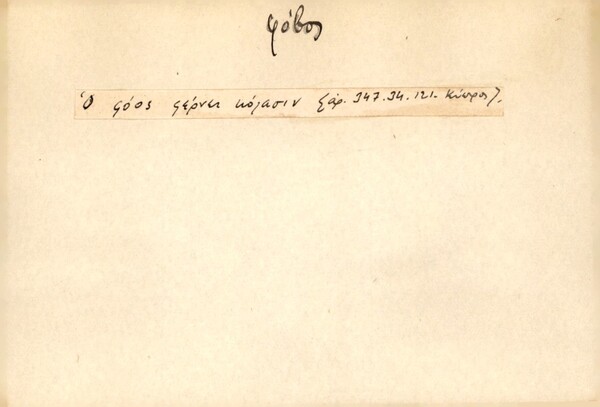 φόβος
Ὁ φόος φέρνει κόλασιν (ἀρ. 347. 34. 121. Κύπρος).